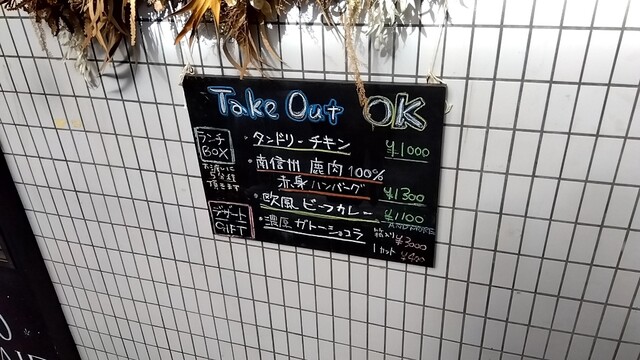 Take Out OK
ランチ
BOX
・タンドリーチキン ¥1000
・南信州 鹿肉100%
赤身ハンバーグ ¥1300
・欧風 ビーフカレー ¥1100
AND MORE
デザート
GIFT
・濃厚 ガトーショコラ
箱入り ¥3000
1カット